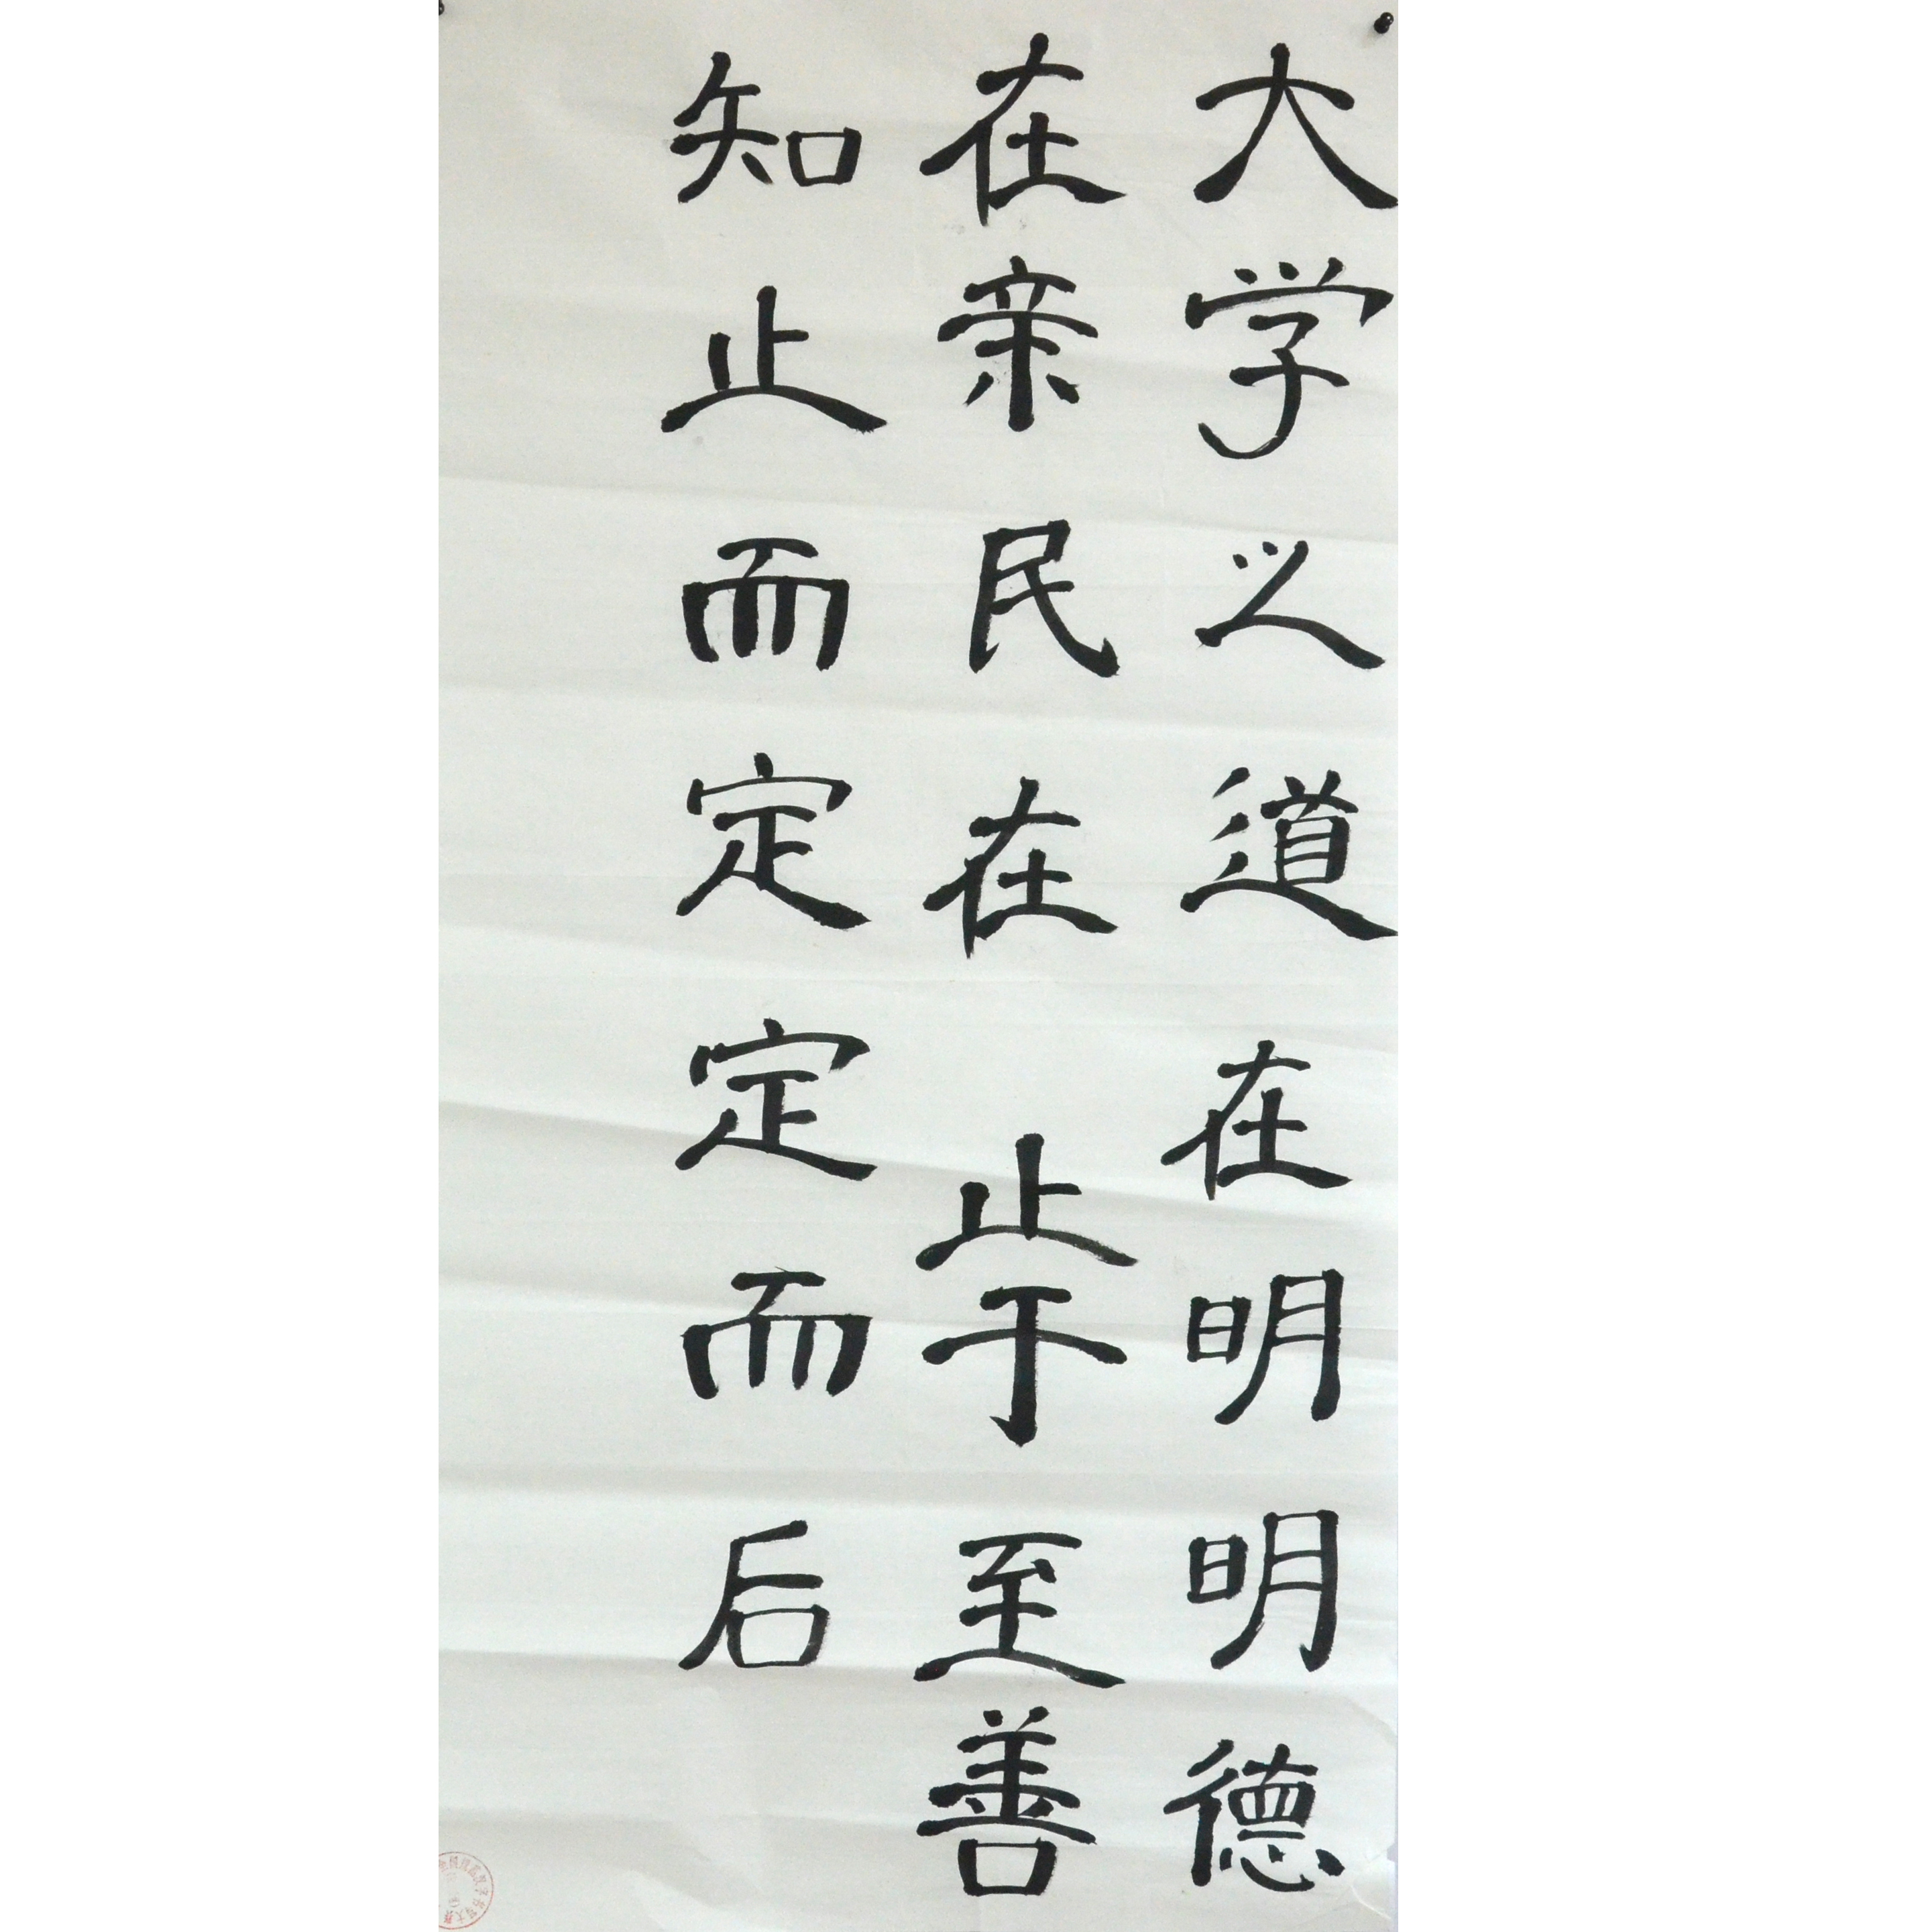 大学之道在明明德
在亲民在止于至善
知止而定定而后